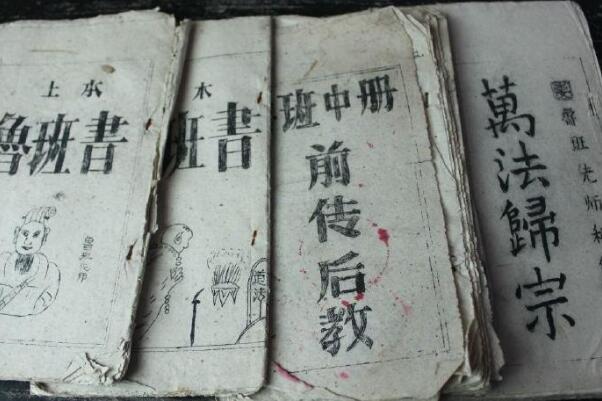 上本
魯班書
木
班書
道法
班中册
前传后教
萬法歸宗
魯班先师